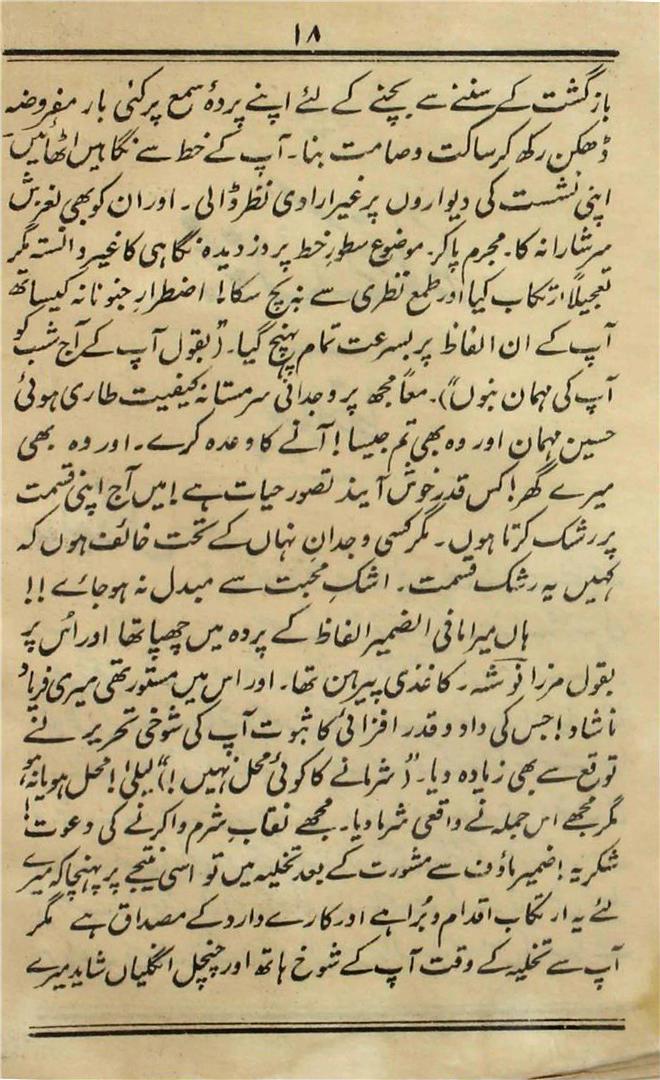 ۱۸
بازگشت کے سننے سے بچنے کے لئے اپنے پردۂ سمع پر کئی بار مفروضہ
ڈھکن رکھ کر ساکت وصامت بنا۔ آپ کے خط سے نگاہیں اٹھائیں
اپنی نشست کی دیواروں پر غیر ارادی نظر ڈالی۔ اور ان کو بھی لغزش
سرشارانہ کا۔ مجرم پا کر۔ موضوع سطورِ خط پر دزدیدہ نگاہی کا غیر دانستہ مگر
تعجیلاً ارتکاب کیا اور طمع نظری سے نہ بچ سکا! اضطرارِ جنونانہ کیساتھ
آپ کے ان الفاظ پر بسرعت تمام پہنچ گیا۔ "(بقول آپ کے آج شب کو
آپ کی مہمان بنوں")۔ معاً مجھ پر وجدانی سرمستانہ کیفیت طاری ہوئی
حسین مہمان اور وہ بھی تم جیسا! آنے کا وعدہ کرے۔ اور وہ بھی
میرے گھر! کس قدر خوش آیند تصور حیات ہے! میں آج اپنی قسمت
پر رشک کرتا ہوں۔ مگر کسی وجدانِ نہاں کے تحت خائف ہوں کہ
کہیں یہ رشک قسمت۔ اشکِ محبت سے مبدل نہ ہو جائے!!
ہاں میرا مافی الضمیر الفاظ کے پردہ میں چھپا تھا اور اُس پر
بقول مرزا نوشہ۔ کاغذی پیرہن تھا۔ اور اس میں مستور تھی میری فریاد
ناشاد! جس کی داد و قدر افزائی کا ثبوت آپ کی شوخی تحریر نے
توقع سے بھی زیادہ دیا۔ "(شرمانے کا کوئی محل نہیں!)" لیلیٰ! محل ہو یا نہ ہو،
مگر مجھے اس جملہ نے واقعی شرما دیا۔ مجھے نقابِ شرم وا کرنے کی دعوت!
شکریہ! ضمیر ماؤف سے مشورت کے بعد تخلیہ میں تو اسی نتیجے پر پہنچا کہ میرے
لئے یہ ارتکاب اقدام و بُرا ہے اور کارے دارد کے مصداق ہے مگر
آپ سے تخلیہ کے وقت آپ کے شوخ ہاتھ اور چنچل انگلیاں شاید میرے